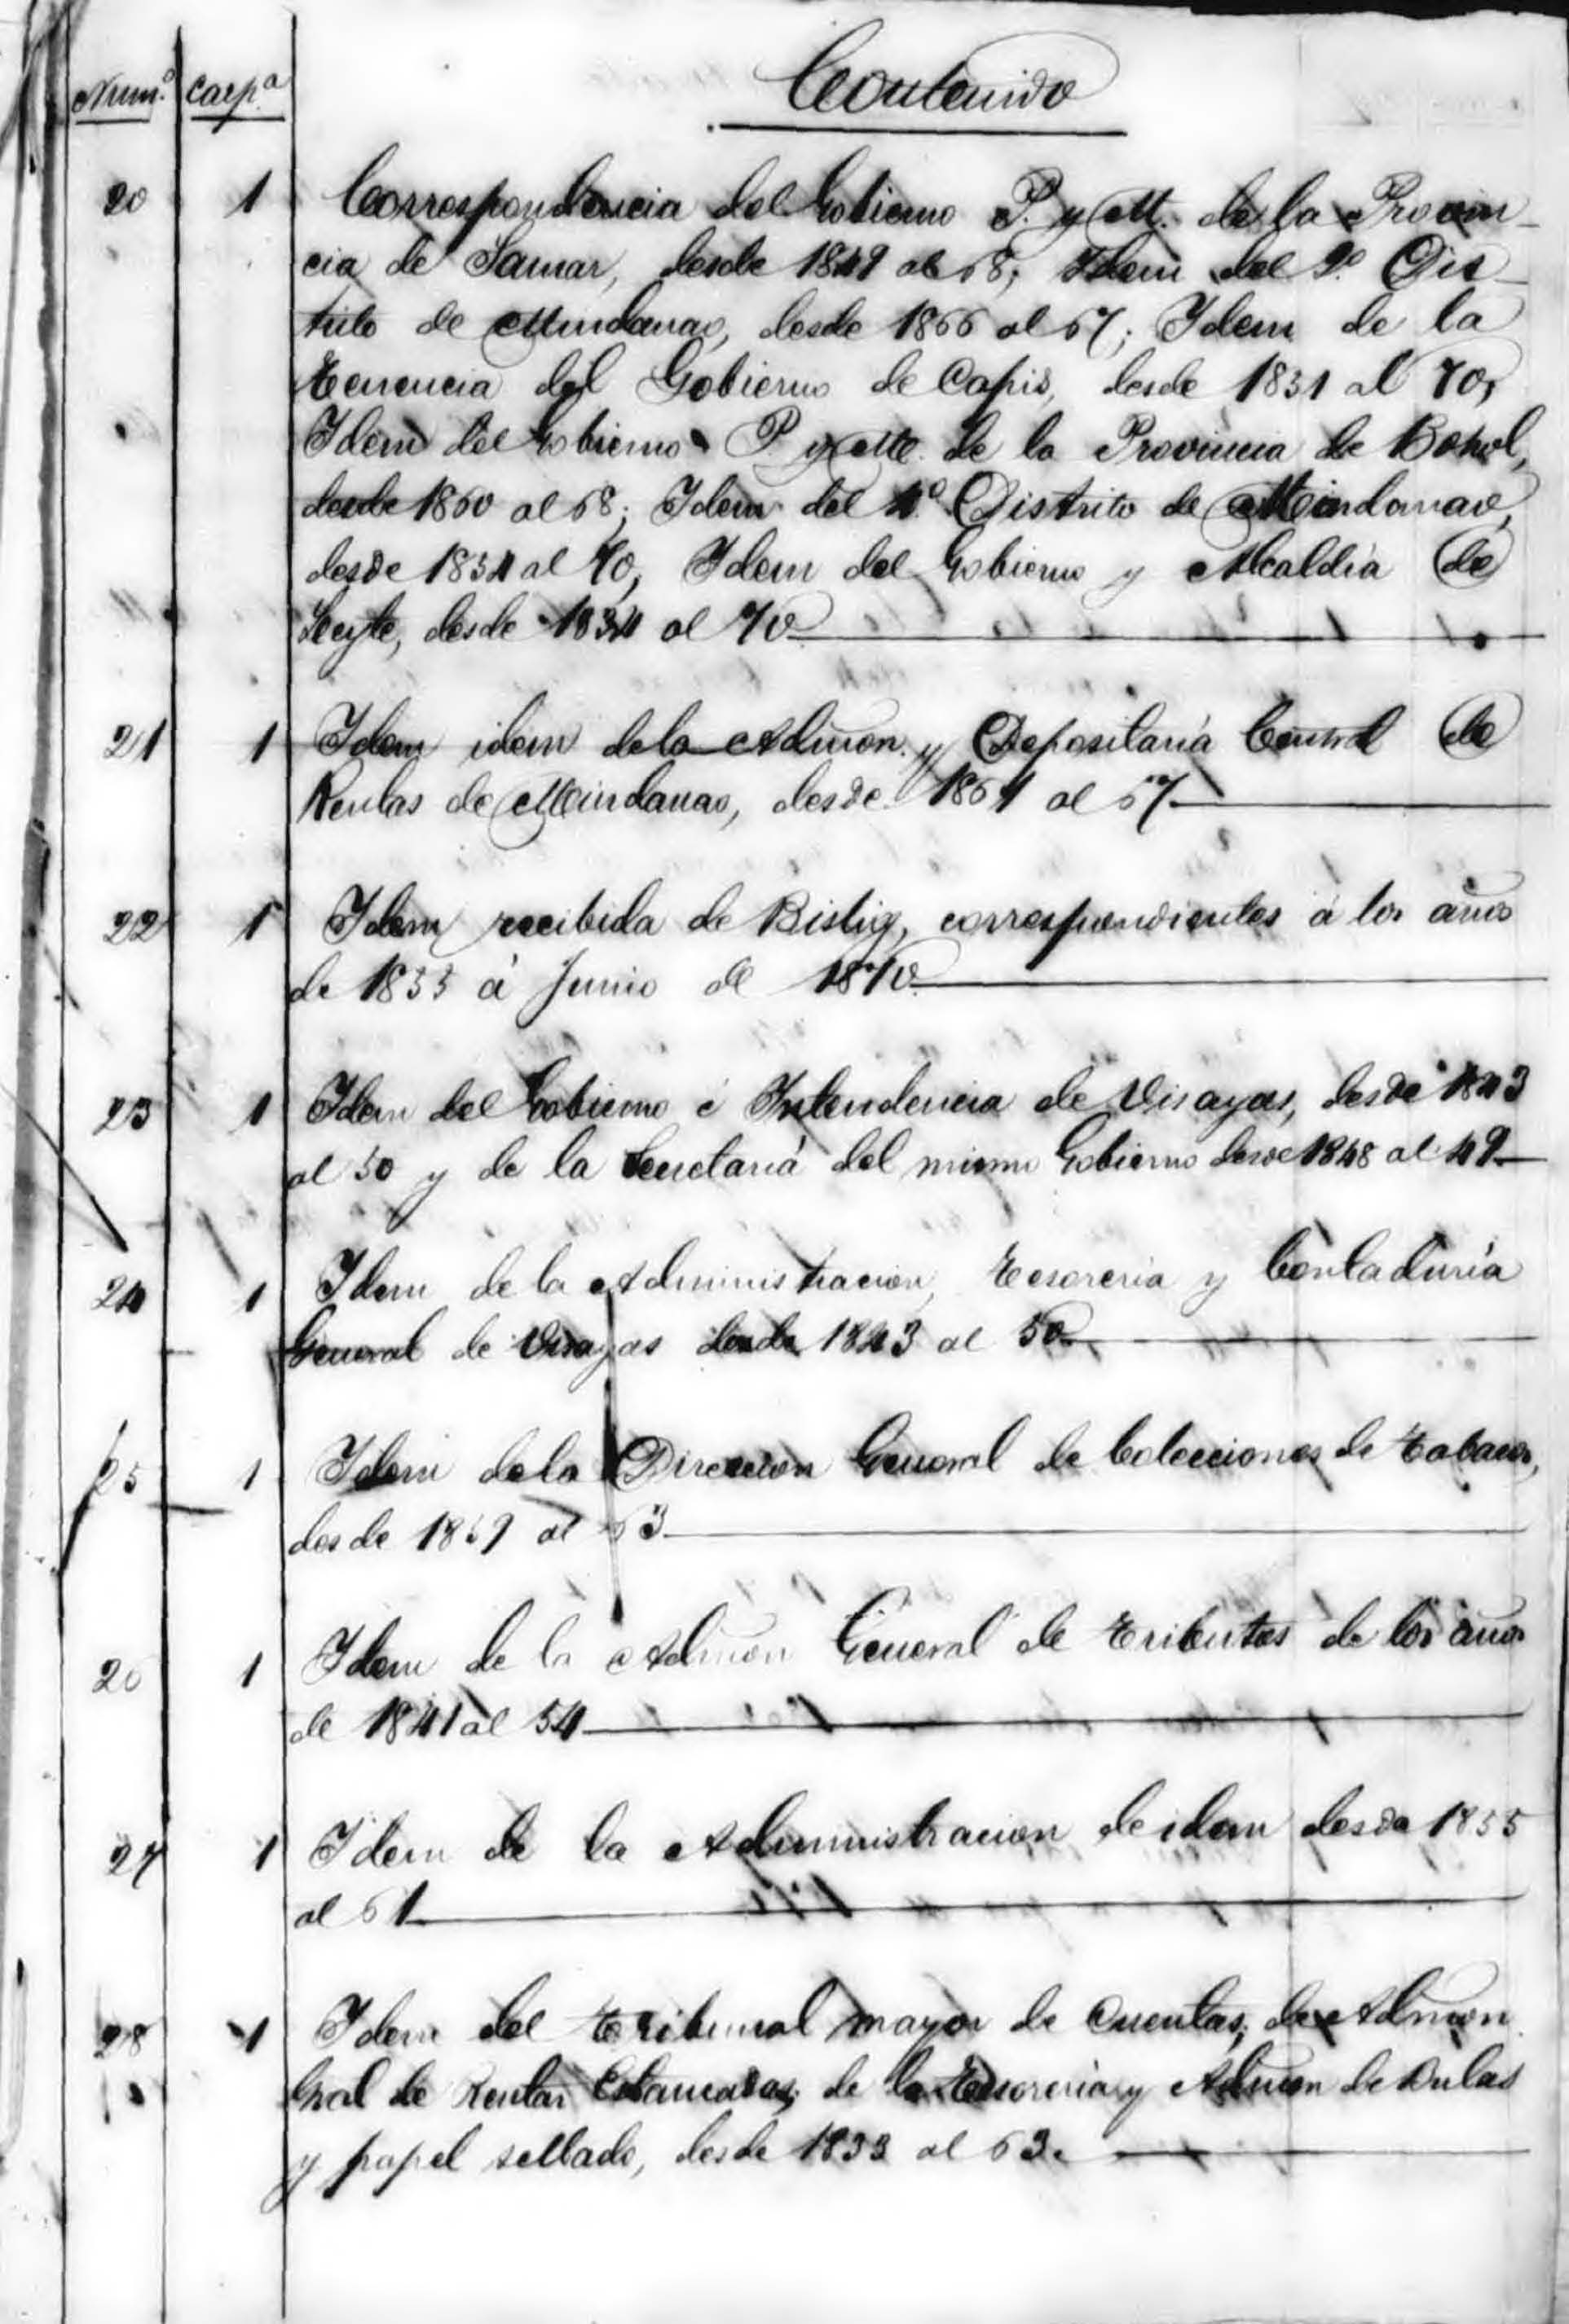 Num.º Carp.ª Contenido
20 1 Correspondencia del Gobierno P. y M. de la Provin-
cia de Samar, desde 1849 al 68; Idem del 2º Dis-
trito de Mindanao, desde 1866 al 67; Idem de la
Tenencia del Gobierno de Capis, desde 1831 al 70,
Idem del Gobierno P. y M. de la Provincia de Bohol,
desde 1860 al 68; Idem del 4º Distrito de Mindanao,
desde 1834 al 70, Idem del Gobierno y Alcaldia de
Leyte, desde 1834 al 70
21 1 Idem idem de la Admon. y Depositaría Central de
Rentas de Mindanao, desde 1861 al 67
22 1 Idem recibida de Bislig, correspondientes á los años
de 1833 á Junio de 1870
23 1 Idem del Gobierno é Intendencia de Visayas, desde 1843
al 50 y de la Secretaría del mismo Gobierno desde 1848 al 49
24 1 Idem de la Administracion, Tesoreria y Contaduría
General de Visayas desde 1843 al 50
25 1 Idem de la Direccion General de Colecciones de Tabacos,
desde 1859 al 63
26 1 Idem de la Admon General de Tributos de los años
de 1841 al 54
27 1 Idem de la Administracion de idem desde 1855
al 61
28 1 Idem del Tribunal mayor de Cuentas; de Admon
Gral de Rentas Estancadas; de la Tesoreria y Admon de Bulas
y papel sellado, desde 1833 al 63.